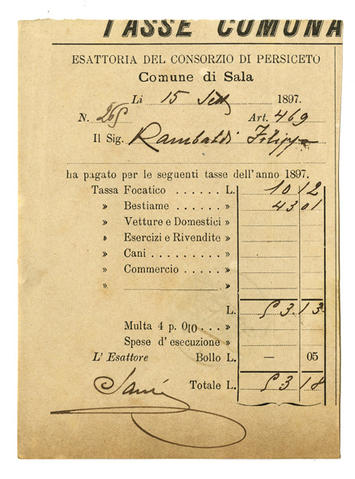 TASSE COMUNA
ESATTORIA DEL CONSORZIO DI PERSICETO
Comune di Sala
Li 15 Sett 1897.
N. 265 Art. 469
Il Sig. Rambaldi Filippo
ha pagato per le seguenti tasse dell'anno 1897.
Tassa Focatico ...... L. 10 12
» Bestiame ...... » 43 01
» Vetture e Domestici »
» Esercizi e Rivendite »
» Cani ......... »
» Commercio ..... »
» »
L. 53.13
Multa 4 p. 0|0 ... »
Spese d'esecuzione »
L'Esattore Bollo L. — 05
Totale L. 53 18